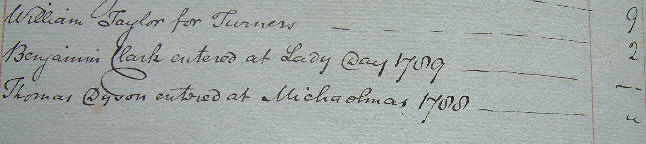 William Taylor for Turners — — — — — — 9
Benjamin Clark entered at Lady Day 1789 — — — 2
Thomas Dyson entred at Michaelmas 1788 — — — — "